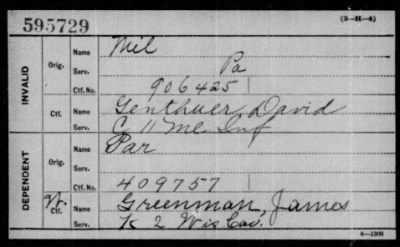 595729
(3-H-4)
INVALID
Orig.
Name Mil
Serv. Pa
Ctf. No. 906425
Ctf.
Name Genthuer, David
Serv. C 11 Me Inf
DEPENDENT
Orig.
Name Par
Serv.
Ctf. No. 409757
Ctf.
Name Greenman, James
Serv. K 2 Wis Cav.
6-1309